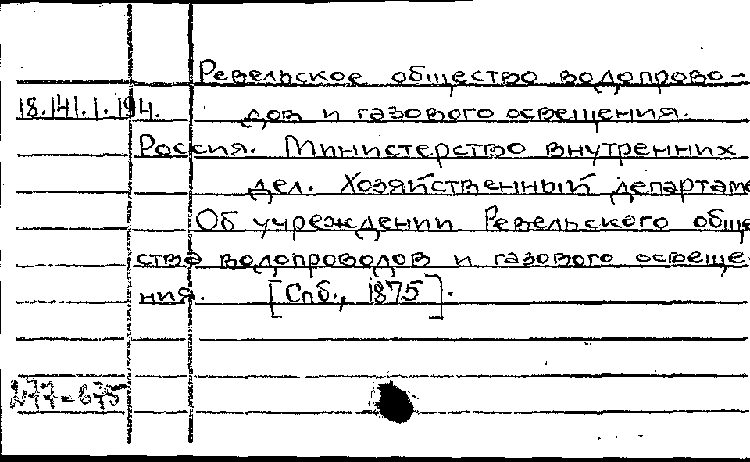 Ревельское общество водопрово-
18.141.1.194. дов и газового освещения.
Россия. Министерство внутренних
дел. Хозяйственный департаме
Об учреждении Ревельского обще
ства водопроводов и газового освеще-
ния. [Спб., 1875].
277-675